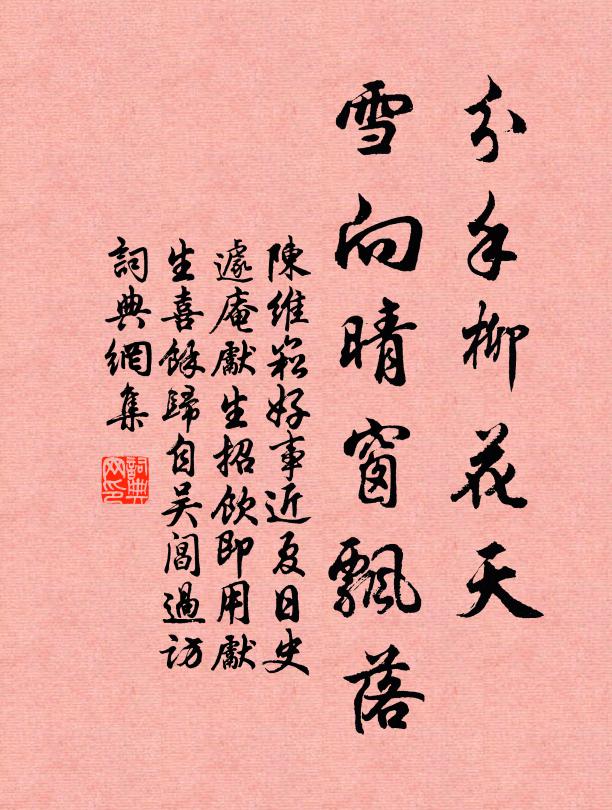 分手柳花天
雪向晴窗飄落
陳維崧好事近夏日史
遽庵獻生招飲即用獻
生喜餘歸自吴閶過訪
詞典網集
詞典網印